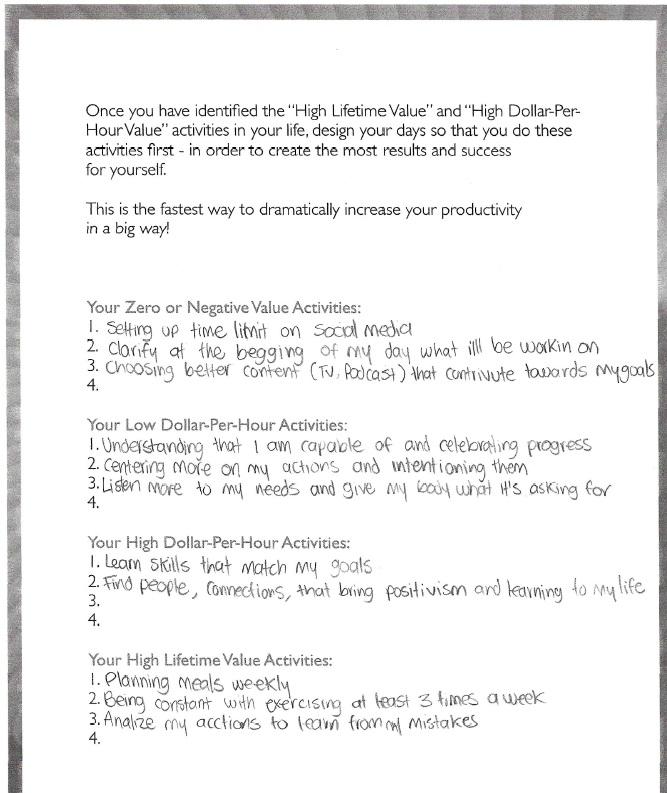 Once you have identified the "High Lifetime Value" and "High Dollar-Per-
Hour Value" activities in your life, design your days so that you do these
activities first - in order to create the most results and success
for yourself.
This is the fastest way to dramatically increase your productivity
in a big way!
Your Zero or Negative Value Activities:
1. Setting up time limit on social media
2. Clarify at the begging of my day what ill be workin on
3. Choosing better content (TV, Podcast) that contrivute towards my goals
4.
Your Low Dollar-Per-Hour Activities:
1. Understanding that I am capable of and celebrating progress
2. Centering more on my actions and intentioning them
3. Listen more to my needs and give my body what it's asking for
4.
Your High Dollar-Per-Hour Activities:
1. Learn skills that match my goals
2. Find people, connections, that bring positivism and learning to my life
3.
4.
Your High Lifetime Value Activities:
1. Planning meals weekly
2. Being constant with exercising at least 3 times a week
3. Analize my acctions to learn from my mistakes
4.